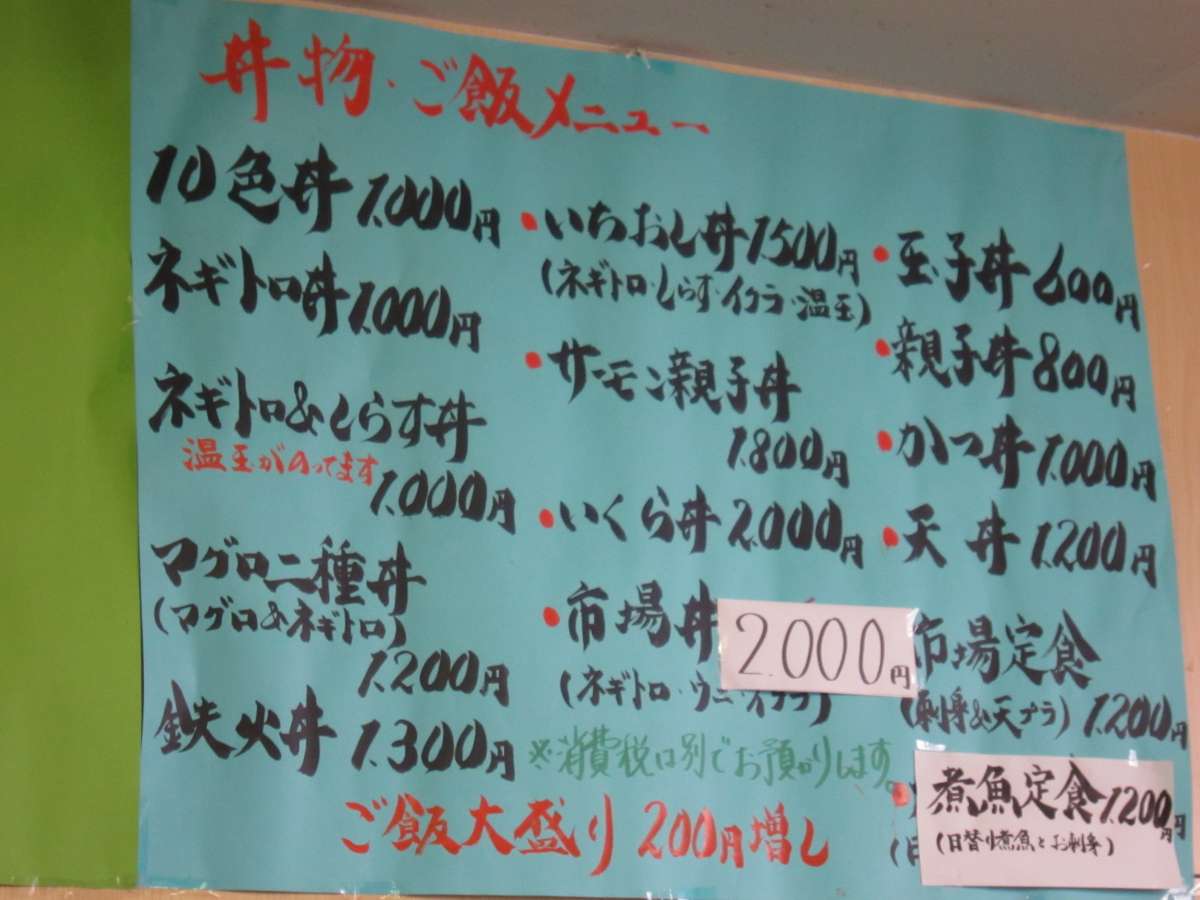 丼物・ご飯メニュー
10色丼 1.000円
ネギトロ丼 1.000円
ネギトロ&しらす丼
温玉がのってます
1.000円
マグロ二種丼
(マグロ&ネギトロ)
1.200円
鉄火丼 1.300円
・いちおし丼 1500円
(ネギトロ・しらす・イクラ・温玉)
・サーモン親子丼
1.800円
・いくら丼 2.000円
・市場丼 2.000円
(ネギトロ・ウニ・イクラ)
※消費税は別でお預かりします。
・玉子丼 600円
・親子丼 800円
・かつ丼 1.000円
・天丼 1.200円
市場定食
(刺身&天プラ) 1.200円
煮魚定食 1.200円
(日替り煮魚とお刺身)
ご飯大盛り 200円増し